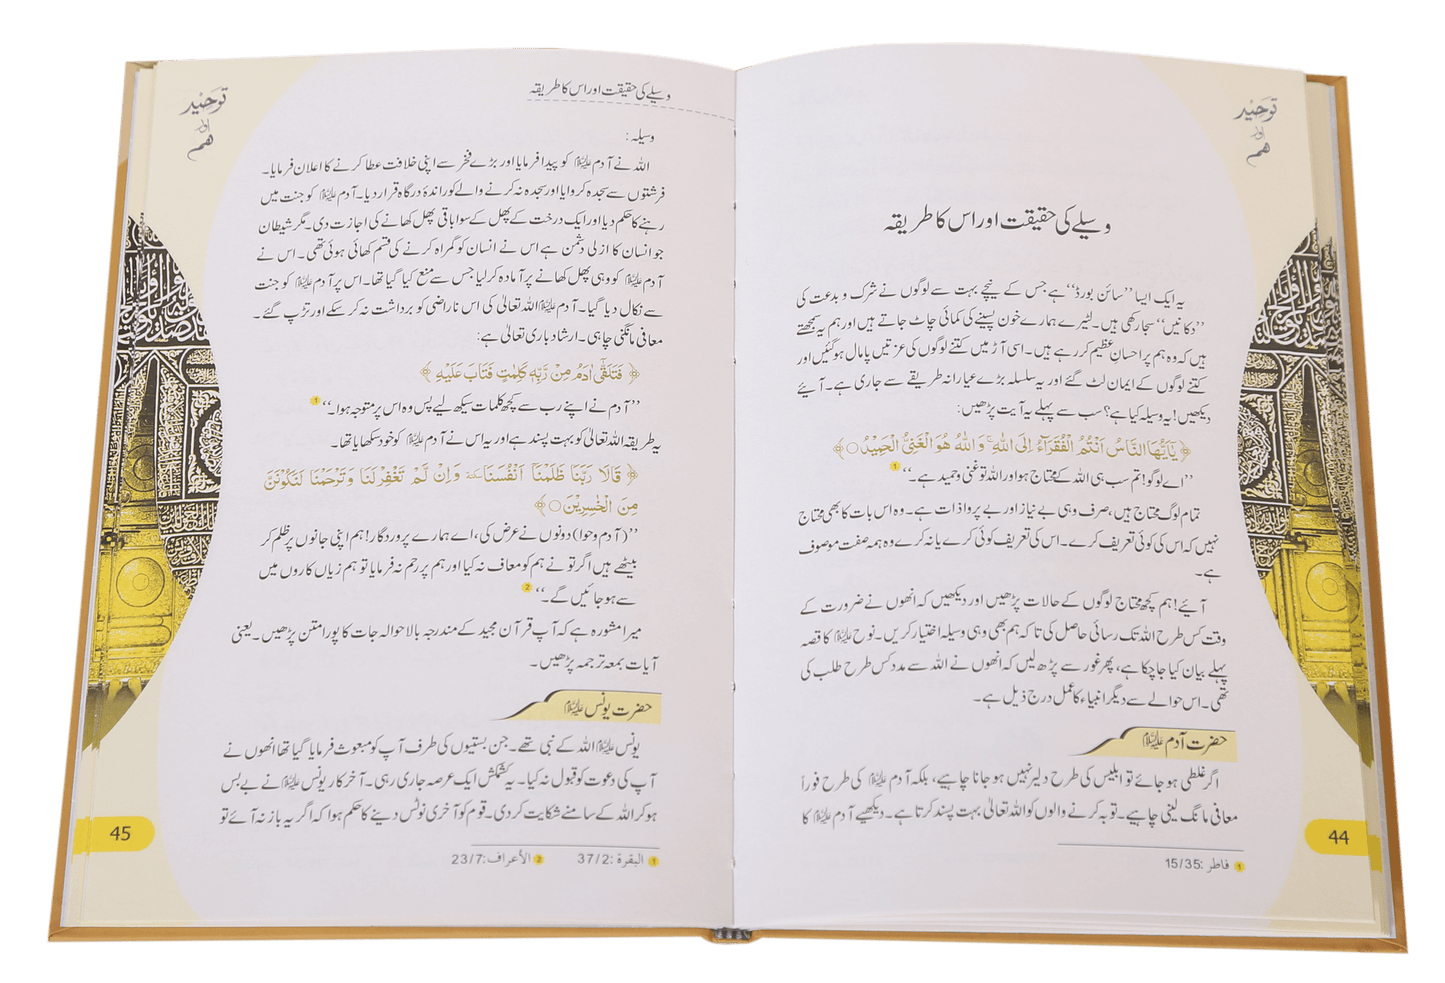 توحید
اور
ھم
وسیلے کی حقیقت اور اس کا طریقہ
یہ ایک ایسا ’’سائن بورڈ‘‘ ہے جس کے نیچے بہت سے لوگوں نے شرک و بدعت کی
’’دکانیں‘‘ سجا رکھی ہیں۔ لٹیرے ہمارے خون پسینے کی کمائی چاٹ جاتے ہیں اور ہم یہ سمجھتے
ہیں کہ وہ ہم پر احسانِ عظیم کر رہے ہیں۔ اسی آڑ میں کتنے لوگوں کی عزتیں پامال ہو گئیں اور
کتنے لوگوں کے ایمان لٹ گئے اور یہ سلسلہ بڑے عیارانہ طریقے سے جاری ہے۔ آیئے
دیکھیں! یہ وسیلہ کیا ہے؟ سب سے پہلے یہ آیت پڑھیں:
﴿ يٰٓاَيُّهَا النَّاسُ اَنْتُمُ الْفُقَرَآءُ اِلَى اللّٰهِ ۚ وَ اللّٰهُ هُوَ الْغَنِيُّ الْحَمِيْدُ ○ ﴾
’’اے لوگو! تم سب ہی اللہ کے محتاج ہو اور اللہ تو غنی و حمید ہے۔‘‘ 1
تمام لوگ محتاج ہیں، صرف وہی بے نیاز اور بے پروا ذات ہے۔ وہ اس بات کا بھی محتاج
نہیں کہ اس کی کوئی تعریف کرے۔ اس کی تعریف کوئی کرے یا نہ کرے وہ ہمہ صفت موصوف
ہے۔
آیئے! ہم کچھ محتاج لوگوں کے حالات پڑھیں اور دیکھیں کہ انھوں نے ضرورت کے
وقت کس طرح اللہ تک رسائی حاصل کی تا کہ ہم بھی وہی وسیلہ اختیار کریں۔ نوح علیہ السلام کا قصہ
پہلے بیان کیا جا چکا ہے، پھر غور سے پڑھ لیں کہ انھوں نے اللہ سے مدد کس طرح طلب کی
تھی۔ اس حوالے سے دیگر انبیاء کا عمل درج ذیل ہے۔
حضرت آدم علیہ السلام
اگر غلطی ہو جائے تو ابلیس کی طرح دلیر نہیں ہو جانا چاہیے، بلکہ آدم علیہ السلام کی طرح فوراً
معافی مانگ لینی چاہیے۔ توبہ کرنے والوں کو اللہ تعالیٰ بہت پسند کرتا ہے۔ دیکھیے آدم علیہ السلام کا
1 فاطر :15/35
44
توحید
اور
ھم
وسیلے کی حقیقت اور اس کا طریقہ
وسیلہ:
اللہ نے آدم علیہ السلام کو پیدا فرمایا اور بڑے فخر سے اپنی خلافت عطا کرنے کا اعلان فرمایا۔
فرشتوں سے سجدہ کروایا اور سجدہ نہ کرنے والے کو راندۂ درگاہ قرار دیا۔ آدم علیہ السلام کو جنت میں
رہنے کا حکم دیا اور ایک درخت کے پھل کے سوا باقی پھل کھانے کی اجازت دی۔ مگر شیطان
جو انسان کا ازلی دشمن ہے اس نے انسان کو گمراہ کرنے کی قسم کھائی ہوئی تھی۔ اس نے
آدم علیہ السلام کو وہی پھل کھانے پر آمادہ کر لیا جس سے منع کیا گیا تھا۔ اس پر آدم علیہ السلام کو جنت
سے نکال دیا گیا۔ آدم علیہ السلام اللہ تعالیٰ کی اس ناراضی کو برداشت نہ کر سکے اور تڑپ گئے۔
معافی مانگنی چاہی۔ ارشاد باری تعالیٰ ہے:
﴿ فَتَلَقّٰٓى اٰدَمُ مِنْ رَّبِّهٖ كَلِمٰتٍ فَتَابَ عَلَيْهِ ﴾
’’آدم نے اپنے رب سے کچھ کلمات سیکھ لیے پس وہ اس پر متوجہ ہوا۔‘‘ 1
یہ طریقہ اللہ تعالیٰ کو بہت پسند ہے اور یہ اس نے آدم علیہ السلام کو خود سکھایا تھا۔
﴿ قَالَا رَبَّنَا ظَلَمْنَآ اَنْفُسَنَا ٚ وَ اِنْ لَّمْ تَغْفِرْ لَنَا وَ تَرْحَمْنَا لَنَكُوْنَنَّ
مِنَ الْخٰسِرِيْنَ ○ ﴾
’’(آدم و حوا) دونوں نے عرض کی، اے ہمارے پروردگار! ہم اپنی جانوں پر ظلم کر
بیٹھے ہیں اگر تو نے ہم کو معاف نہ کیا اور ہم پر رحم نہ فرمایا تو ہم زیاں کاروں میں
سے ہو جائیں گے۔‘‘ 2
میرا مشورہ ہے کہ آپ قرآن مجید کے مندرجہ بالا حوالہ جات کا پورا متن پڑھیں۔ یعنی
آیات بمعہ ترجمہ پڑھیں۔
حضرت یونس علیہ السلام
یونس علیہ السلام اللہ کے نبی تھے۔ جن بستیوں کی طرف آپ کو مبعوث فرمایا گیا تھا انھوں نے
آپ کی دعوت کو قبول نہ کیا۔ یہ کشمکش ایک عرصہ جاری رہی۔ آخر کار یونس علیہ السلام نے بے بس
ہو کر اللہ کے سامنے شکایت کر دی۔ قوم کو آخری نوٹس دینے کا حکم ہوا کہ اگر یہ باز نہ آئے تو
1 البقرة :37/2 2 الأعراف:23/7
45